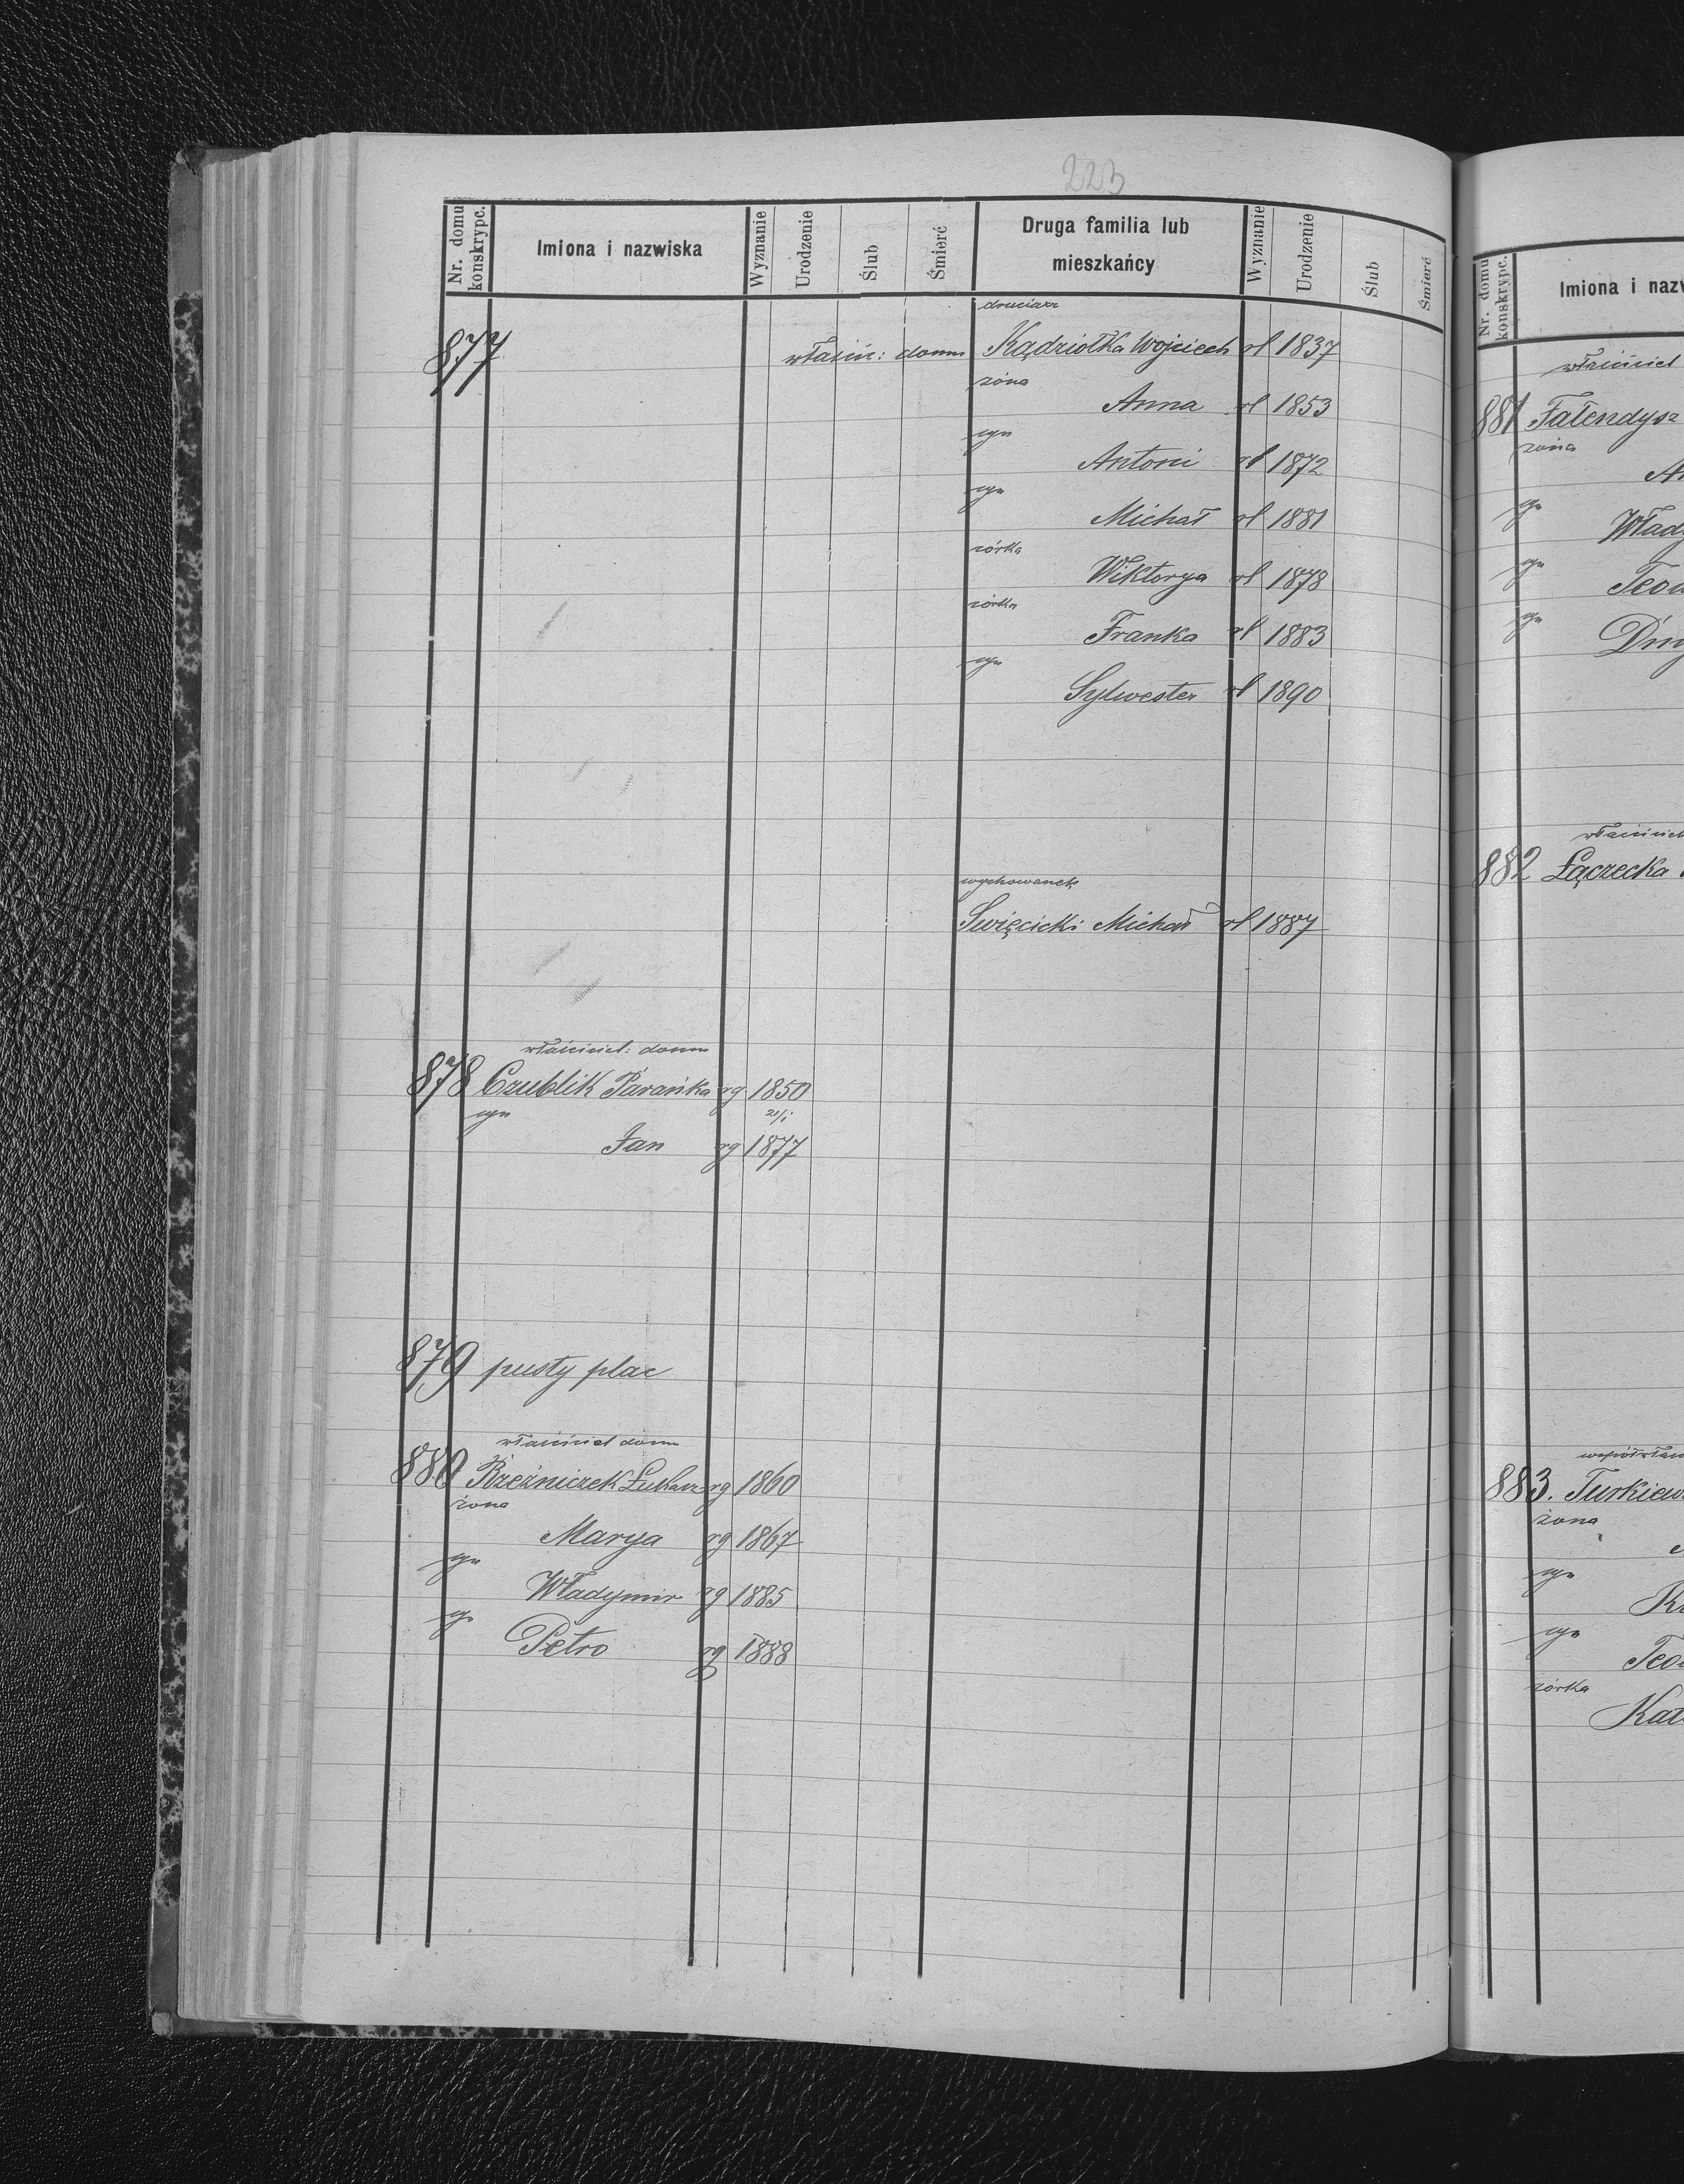 223
Nr. domu konskrypc.
Imiona i nazwiska
Wyznanie
Urodzenie
Ślub
Śmierć
Druga familia lub
mieszkańcy
Wyznanie
Urodzenie
Ślub
Śmierć
druciarz
877 właścic: domu Kądziołka Wojciech rł 1837
żona
Anna rł 1853
syn
Antoni rł 1872
syn
Michał rł 1881
córka
Wiktorya rł 1878
córka
Franka rł 1883
syn
Sylwester rł 1890
wychowanek
Swięcicki Michał rł 1887
właściciel: domu
878 Czublik Parańka rg 1850
syn 21/1
Jan rg 1877
879 pusty plac
właściciel domu
880 Rzeźniczek Łukasz rg 1860
żona
Marya rg 1867
syn
Władymir rg 1885
syn
Petro rg 1888
Nr. domu konskrypc.
Imiona i nazw
właściciel
881 Fałendysz
żona
An
syn
Włady
syn
Teod
syn
Dmy
właściciel
882 Łączecka
współwłaś
883. Turkiew
żona
syn
syn
Teod
córka
Kat